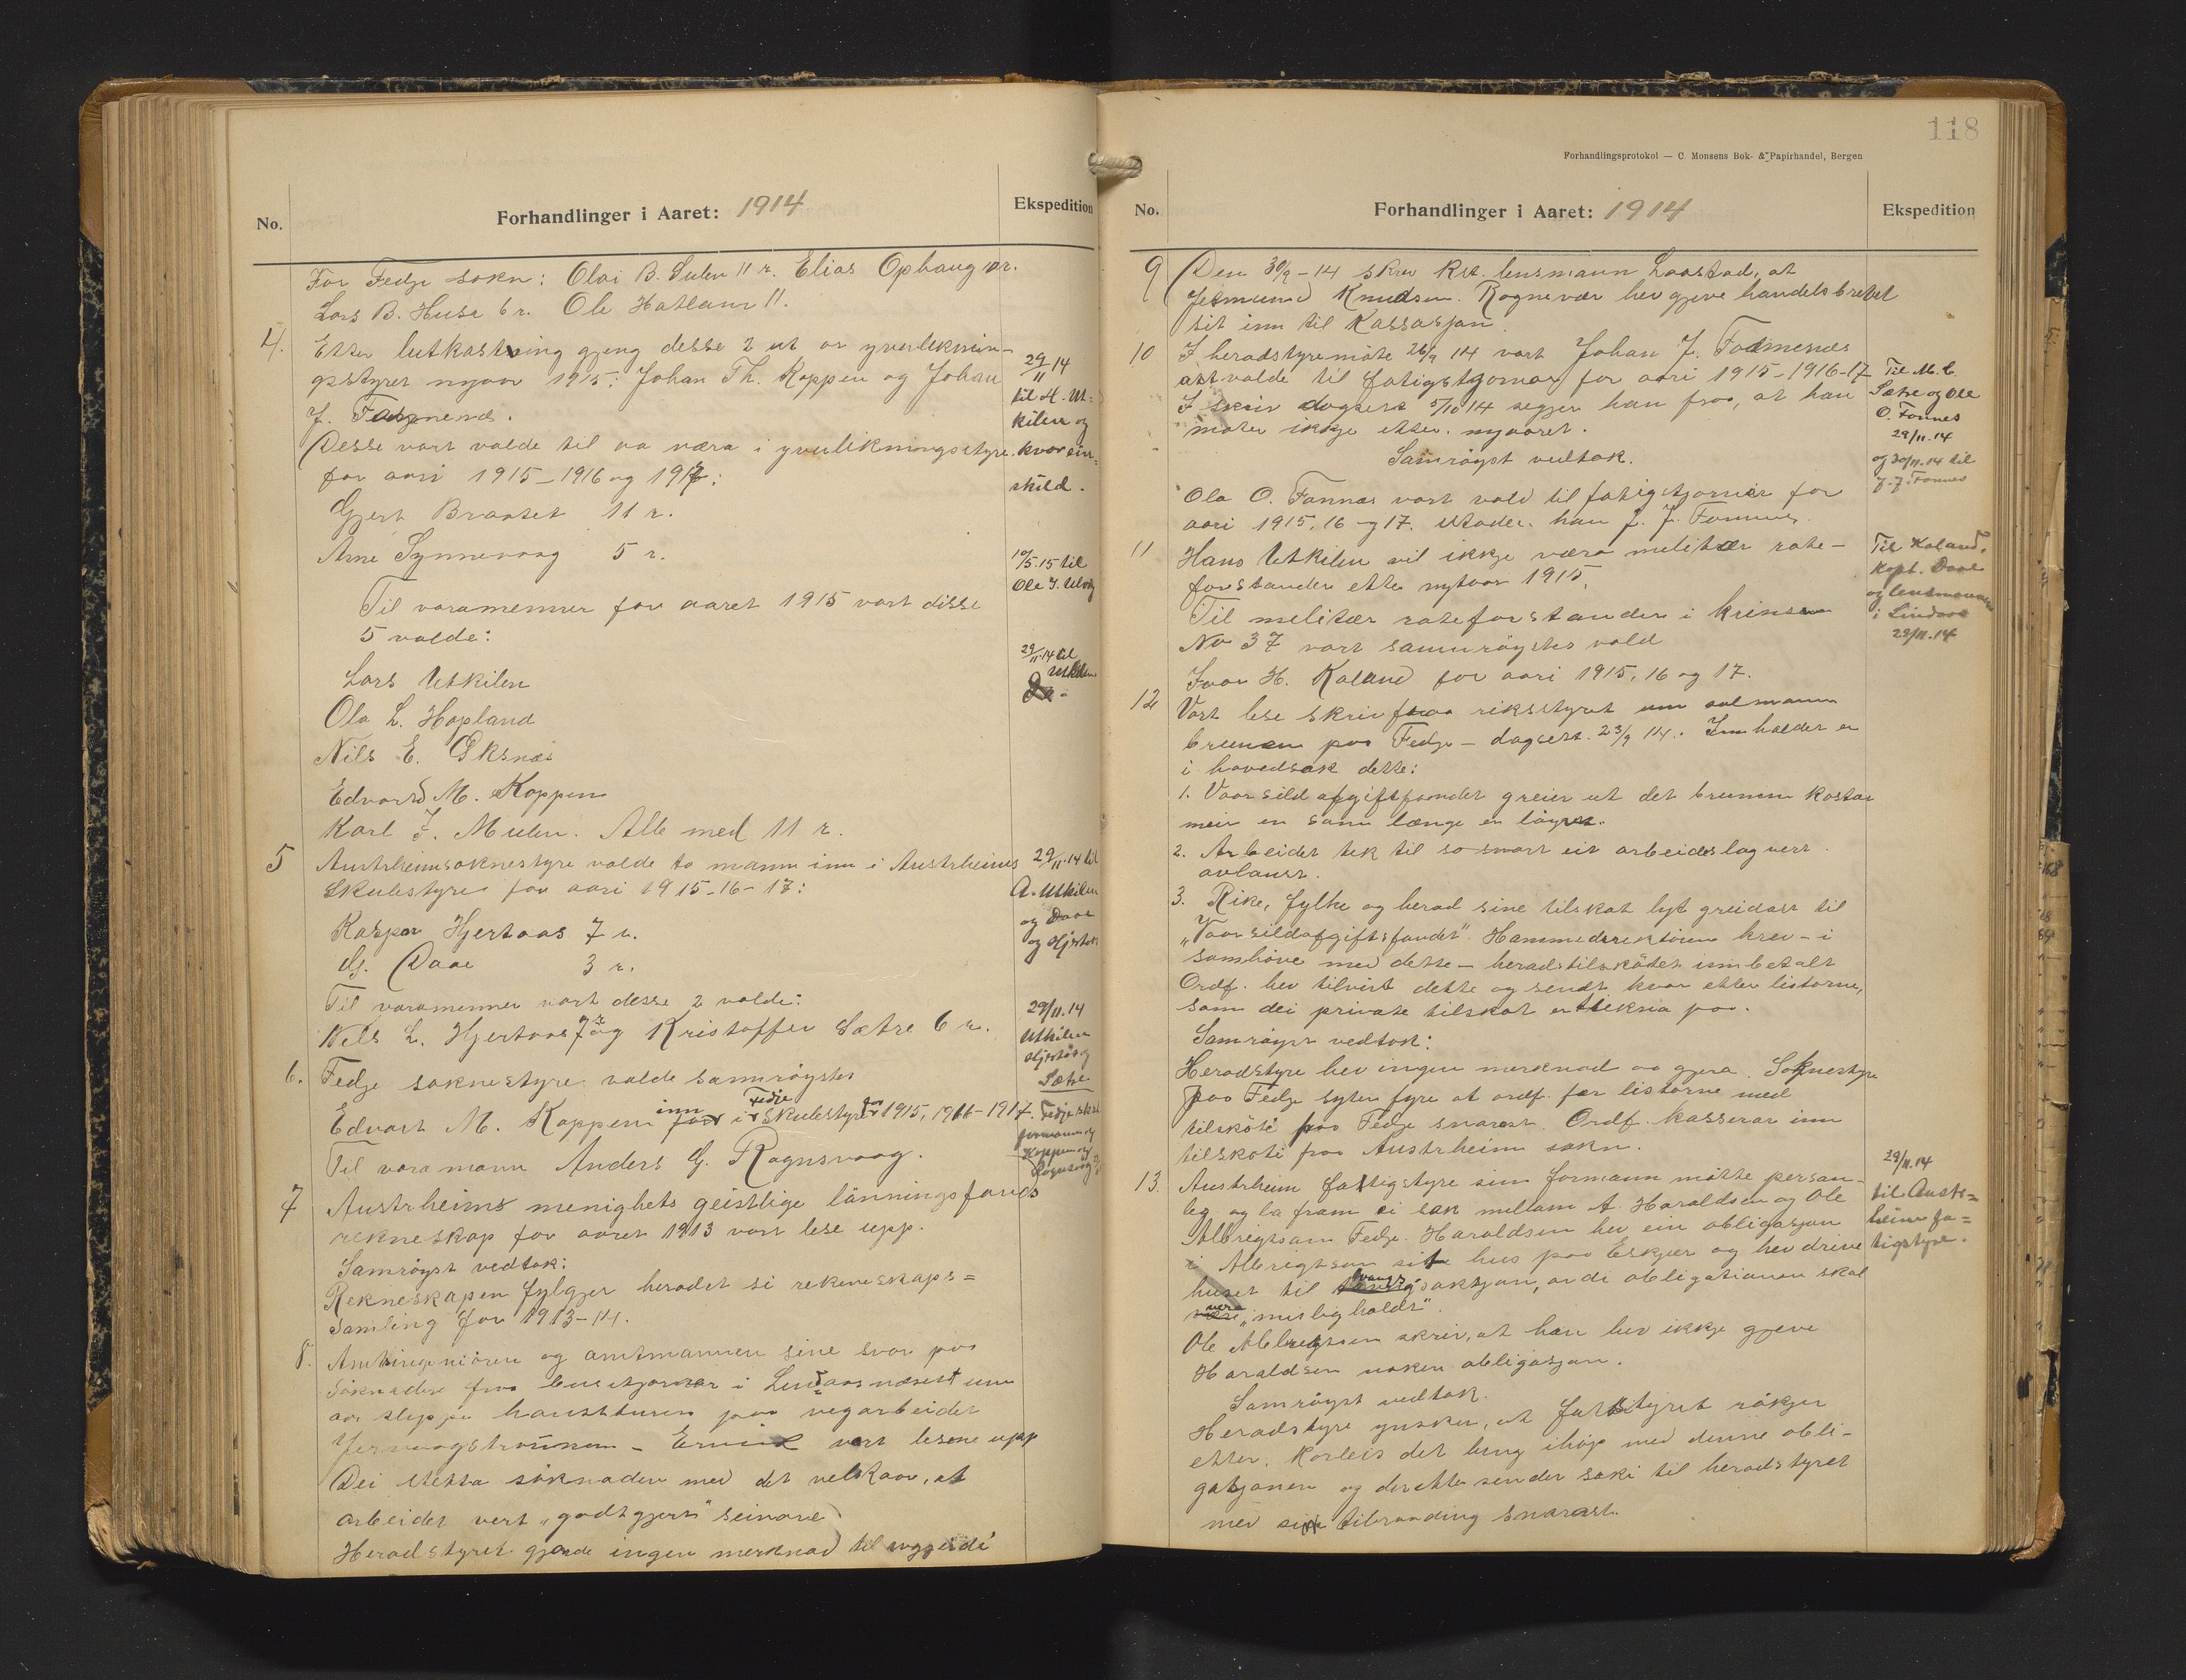 No.
Forhandlinger i Aaret: 1914
Ekspedition
For Fedje sokn: Olai B. Sulen 11 r. Elias Ophaug 10 r.
Lars B. Husa 6 r. Ole Hatland 11.
4. Etter lutkastning gjeng desse 2 ut or yverliknin-
gsstyret nyaar 1915: Johan Th. Koppen og Johan
J. Fonnenes.
Desse vart valde til aa væra i yverlikningsstyre
for aari 1915-1916 og 1917:
Gjert Brastet 11 r.
Arne Synnevaag 5 r.
Til varamenner for aaret 1915 vart disse
5 valde:
Lars Utkilen
Ola L. Hopland
Nils E. Øksnæs
Edvard M. Koppen
Karl J. Mulen. Alle med 11 r.
5 Austrheimsoknestyre valde to mann inn i Austrheims
Skulestyre for aari 1915-16-17:
Kaspar Hjertaas 7 r.
Daae 3 r.
Til varamenner vart desse 2 valde:
Nils L. Hjertaas 7 r og Kristoffer Sætre 6 r.
6. Fedje soknestyre valde samrøystes
Edvart M. Koppen inn i Fedje Skulestyre for 1915, 1916-1917.
Til varamann Anders G. Rognsvaag.
7 Austrheims menighets geistlige lønningsfonds
rekneskap for aaret 1913 vart lese upp.
Samrøyst vedtok:
Rekneskapen fylgjer heradet si rekneskaps=
samling for 1913-14.
8. Amtsingeniøren og amtmannen sine svar paa
søknaden fraa buestjornar i Lindaasnæset um
aa sleppe haustturen paa vegarbeidet
Jernvaagstraumen - vart lesne upp
Dei støtta søknaden med det velkaar, at
arbeidet vert "godtgjort" seinare
Heradstyret gjorde ingen merknad til
29/11 14
til H. Ut=
kilen og
kvar ein=
skild.
10/5.15 til
Ole J.
29/11.14 til
Utkilen
29/11.14 til
A. Utkilen
og Daae
og Hjertaas
29/11.14
Utkilen
Hjertås og
Sætre
Fedje skul
formann og
Koppen og
Rognsvåg
118
Forhandlingsprotokol — C. Monsens Bok- & Papirhandel, Bergen
No.
Forhandlinger i Aaret: 1914
Ekspedition
9 Den 30/9-14 skriv kst. lensmann Laastad, at
Gjermund Knudsen Rognevær hev gjeve handelsbrevet
sit inn til Kassasjon.
10 I heradstyremøte 26/9 14 vart Johan J. Fonnenes
attvalde til fatigstjornar for aari 1915-1916-17
I skriv dagsett 5/10 14 segjer han fraa, at han
møter ikkje etter nyaaret.
Samrøyst vedtok.
Ola O. Fonnes vart vald til fatigstjornar for
aari 1915, 16 og 17. istaden han J. J. Fonnes.
11 Hans Utkilen vil ikkje være militær rote-
forstander etter nyaar 1915.
Til militær roteforstander i krinsen
No 37 vart samrøystes vald
Ivar H. Kaland for aari 1915, 16 og 17.
12 Vart lese skriv fraa riksstyret um aalmanna
brunnen paa Fedje - dagsett 23/9 14. Innhaldet er
i hovedsak dette:
1. Vaarsildafgiftsfondet greier ut det brunnen kostar
meir en som længe er løyvt.
2. Arbeidet tek til so snart eit arbeidslag vert
avlaust.
3. Rike, fylke og herad sine tilskot lyt greidast til
"Vaarsildafgiftsfondet". Hamnedirektøren krev - i
samhøve med dette - heradstilskotet innbetalt
Ordf. hev tilvist dette og sendt kvar etter listorne,
som dei private tilskot er tekna paa.
Samrøyst vedtok:
Heradstyre hev ingen merknad aa gjera. Soknestyre
paa Fedje syter fyre at ordf. fær listorne med
tilskoti paa Fedje snarast. Ordf. kasserar inn
tilskoti fraa Austrheim sokn.
13. Austrheim fatigstyre sin formann møtte person-
leg og la fram ei sak millom A. Haraldsen og Ole
Albrigtson Fedje. Haraldsen hev ein obligasjon
i Albrigtson sit hus paa Eskjer og hev drive
huset til tvangsauksjon, av di obligationen skal
vera "misligholdt".
Ole Albrigtson skriv, at han hev ikkje gjeve
Haraldsen noken obligasjon.
Samrøyst vedtok.
Heradstyre ynskjer, at fatstyret røkjer
etter, korleis det heng ihop med denne obli-
gasjonen og deretter sender saki til heradstyret
med si tilraading snarast.
Til M. C.
Sætre og Ole
O. Fonnes
29/11.14
og 30/11.14 til
J. J. Fonnes
Til Kaland,
Kapt. Daae
og lensmannen
i Lindaas
29/11.14
29/11.14
til Austr=
heim fa=
tigstyre.